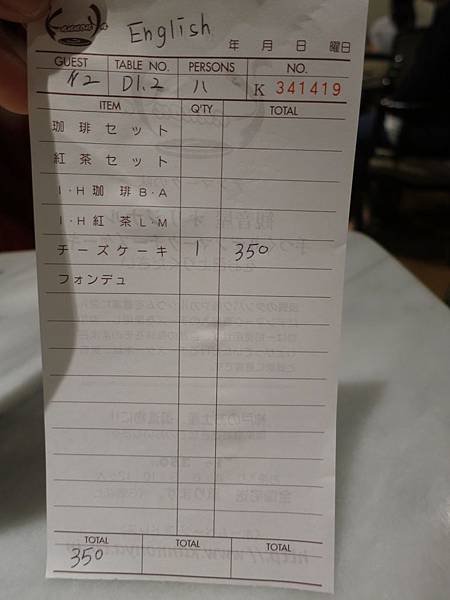 English
年 月 日 曜日
GUEST TABLE NO. PERSONS NO.
D1.2 八 K 341419
ITEM Q'TY TOTAL
珈琲セット
紅茶セット
I・H珈琲B・A
I・H紅茶L・M
チーズケーキ 1 350
フォンデュ
TOTAL TOTAL TOTAL
350